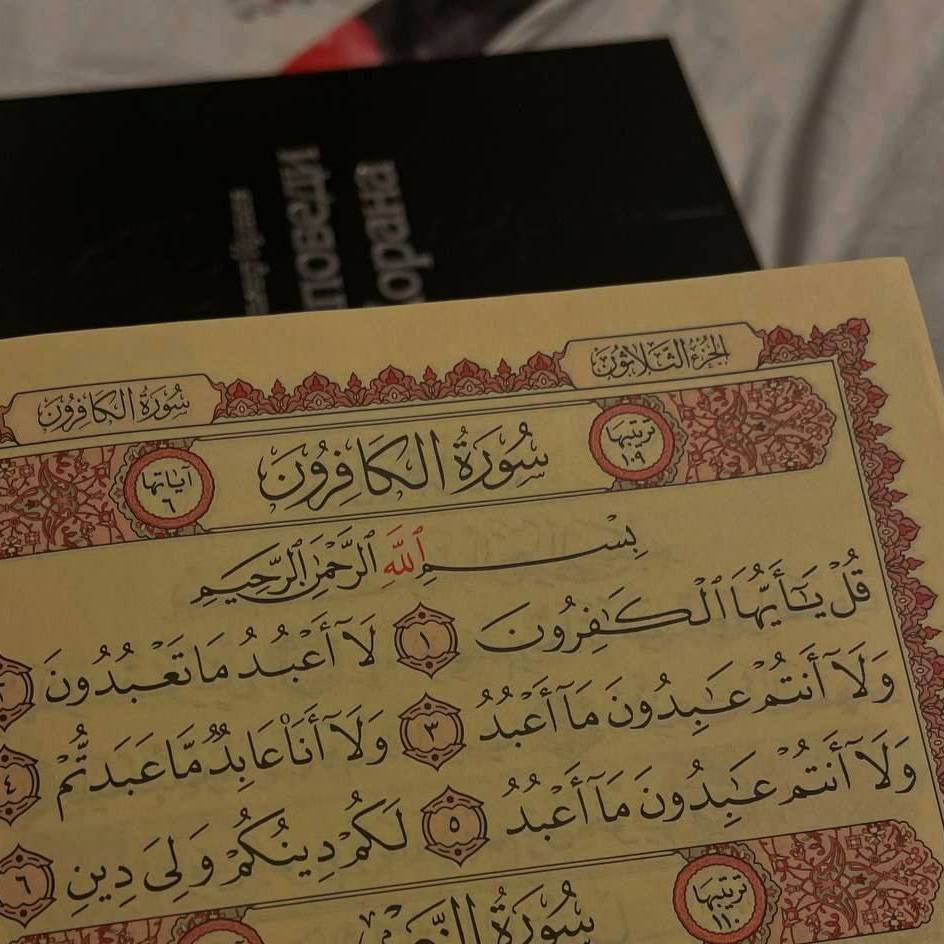 الجزء الثلاثون
سورة الكافرون
ترتيبها ١٠٩
سُورَةُ الْكَافِرُونَ
آياتها ٦
بِسْمِ ٱللَّهِ ٱلرَّحْمَٰنِ ٱلرَّحِيمِ
قُلْ يَٰٓأَيُّهَا ٱلْكَٰفِرُونَ ١ لَآ أَعْبُدُ مَا تَعْبُدُونَ ٢
وَلَآ أَنتُمْ عَٰبِدُونَ مَآ أَعْبُدُ ٣ وَلَآ أَنَا۠ عَابِدٌ مَّا عَبَدتُّمْ ٤
وَلَآ أَنتُمْ عَٰبِدُونَ مَآ أَعْبُدُ ٥ لَكُمْ دِينُكُمْ وَلِىَ دِينِ ٦
ترتيبها ١١٠
سُورَةُ النَّصْرِ